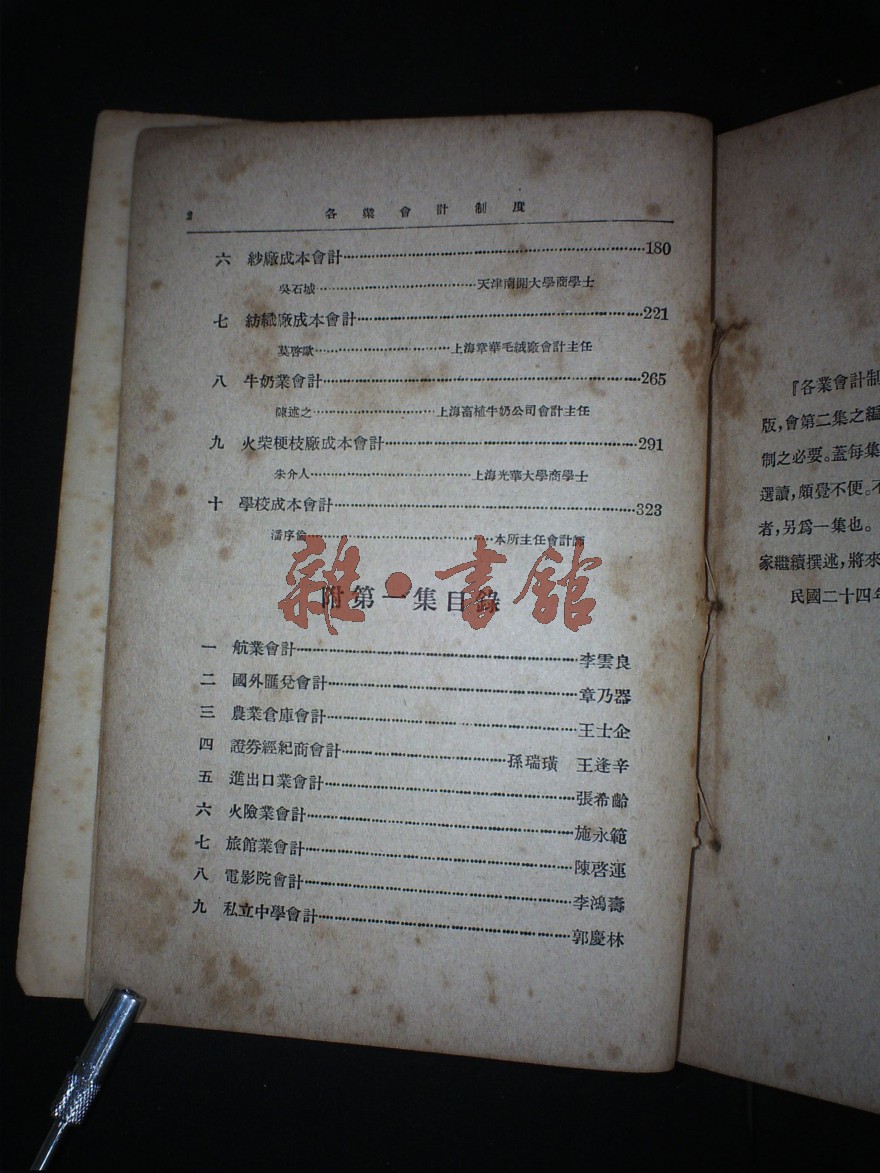 2 各業會計制度
六 紗廠成本會計 180
吳石城 天津南開大學商學士
七 紡織廠成本會計 221
莫啓歐 上海章華毛絨廠會計主任
八 牛奶業會計 265
陳述之 上海畜植牛奶公司會計主任
九 火柴梗枝廠成本會計 291
朱介人 上海光華大學商學士
十 學校成本會計 323
潘序倫 本所主任會計師
雜·書館
附第一集目錄
一 航業會計 李雲良
二 國外匯兌會計 章乃器
三 農業倉庫會計 王士企
四 證券經紀商會計 孫瑞璜 王逢辛
五 進出口業會計 張希齡
六 火險業會計 施永範
七 旅館業會計 陳啓運
八 電影院會計 李鴻壽
九 私立中學會計 郭慶林
『各業會計制
版,會第二集之編
制之必要。蓋每集
選讀,頗覺不便。
者,另爲一集也。
家繼續撰述,將來
民國二十四年